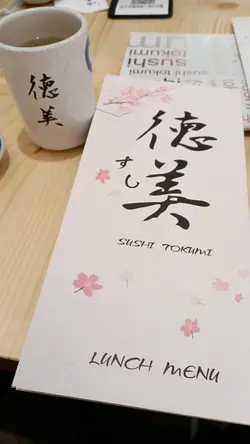 徳
美
um
sushi
tokumi
徳
すし
美
SUSHI TOKUMI
LUNCH MENU